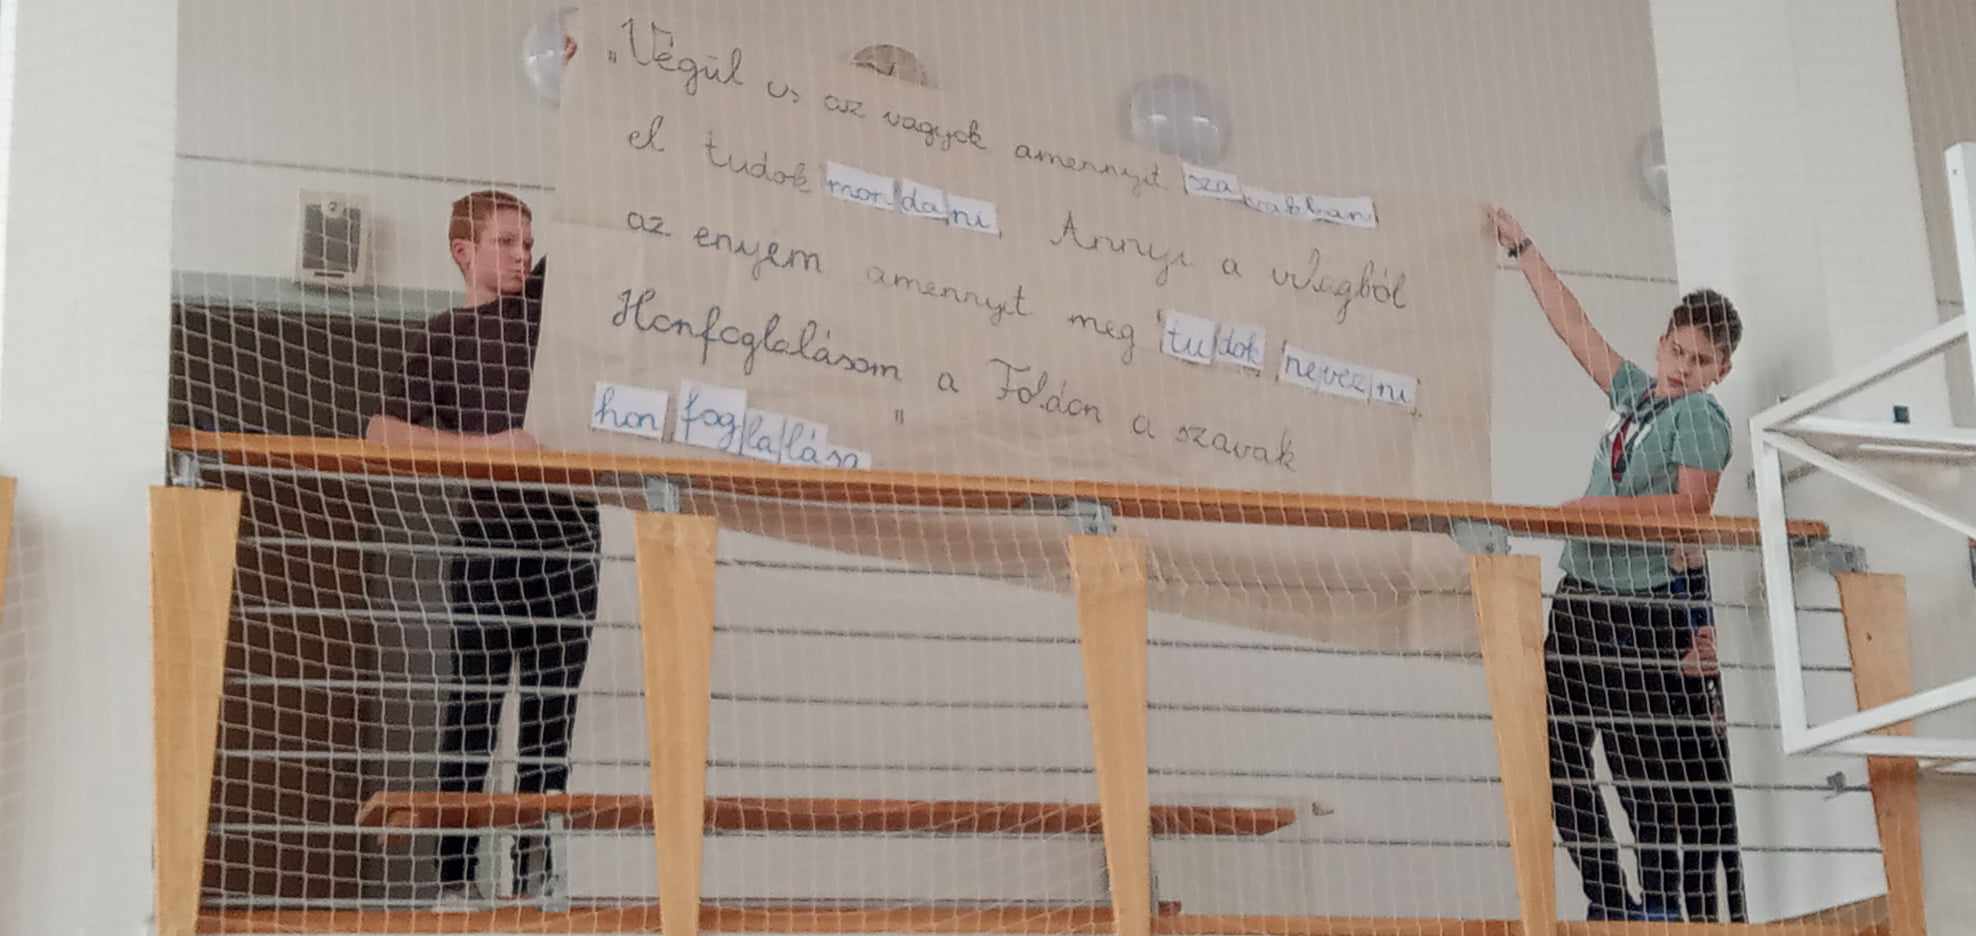 „Végül is az vagyok amennyit szavakban
el tudok mondani. Annyi a világból
az enyém amennyit meg tudok nevezni.
Honfoglalásom a Földön a szavak
honfoglalása"